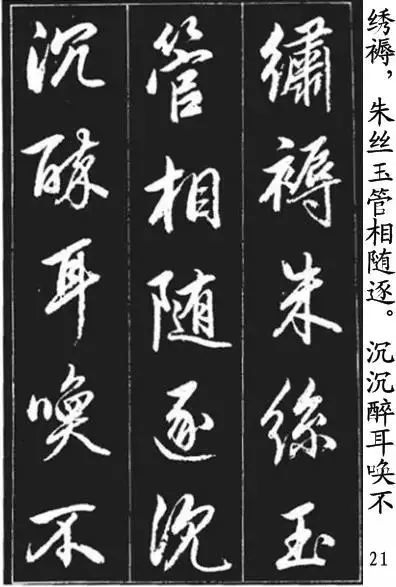 繡褥朱絲玉
管相随逐沉
沉醉耳喚不
绣褥，朱丝玉管相随逐。沉沉醉耳唤不
21